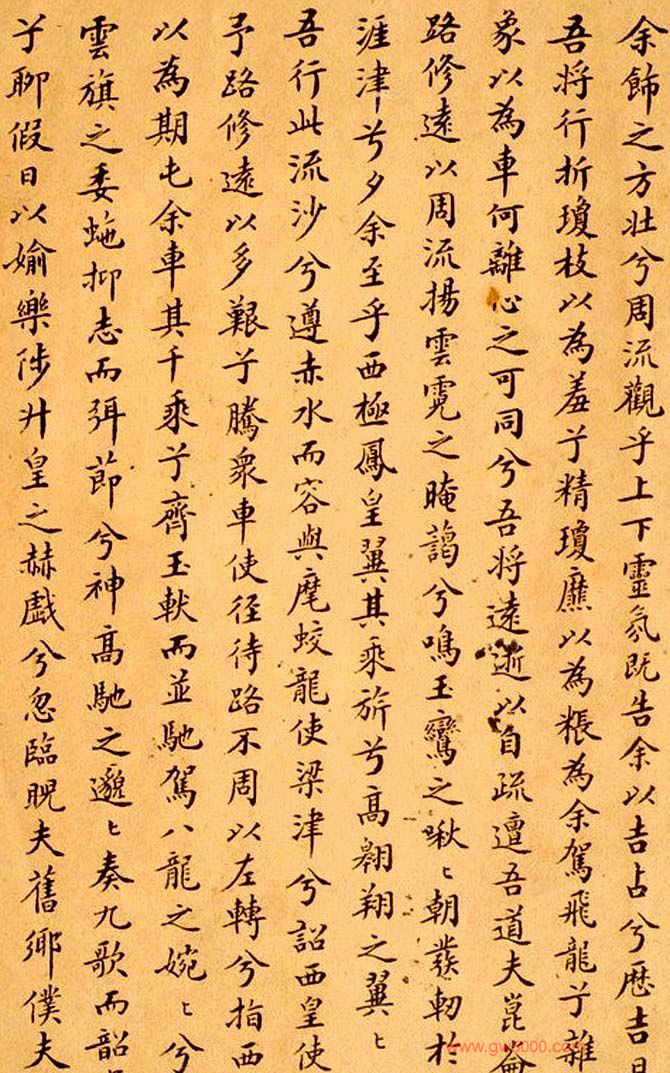 余飾之方壯兮周流觀乎上下靈氛既告余以吉占兮歷吉日
吾将行折瓊枝以為羞兮精瓊爢以為粻為余駕飛龍兮雜
象以為車何離心之可同兮吾将遠逝以自疏邅吾道夫崑崙
路修遠以周流揚雲霓之晻藹兮鳴玉鸞之啾〻朝發軔於
涯津兮夕余至乎西極鳳皇翼其乘旂兮高翱翔之翼〻
吾行此流沙兮遵赤水而容與麾蛟龍使梁津兮詔西皇使
予路修遠以多艱兮騰衆車使徑待路不周以左轉兮指西
以為期屯余車其千乘兮齊玉軑而並馳駕八龍之婉〻兮
雲旗之委虵抑志而弭節兮神高馳之邈〻奏九歌而韶
兮聊假日以媮樂陟升皇之赫戲兮忽臨睨夫舊鄉僕夫
www.gw5000.com